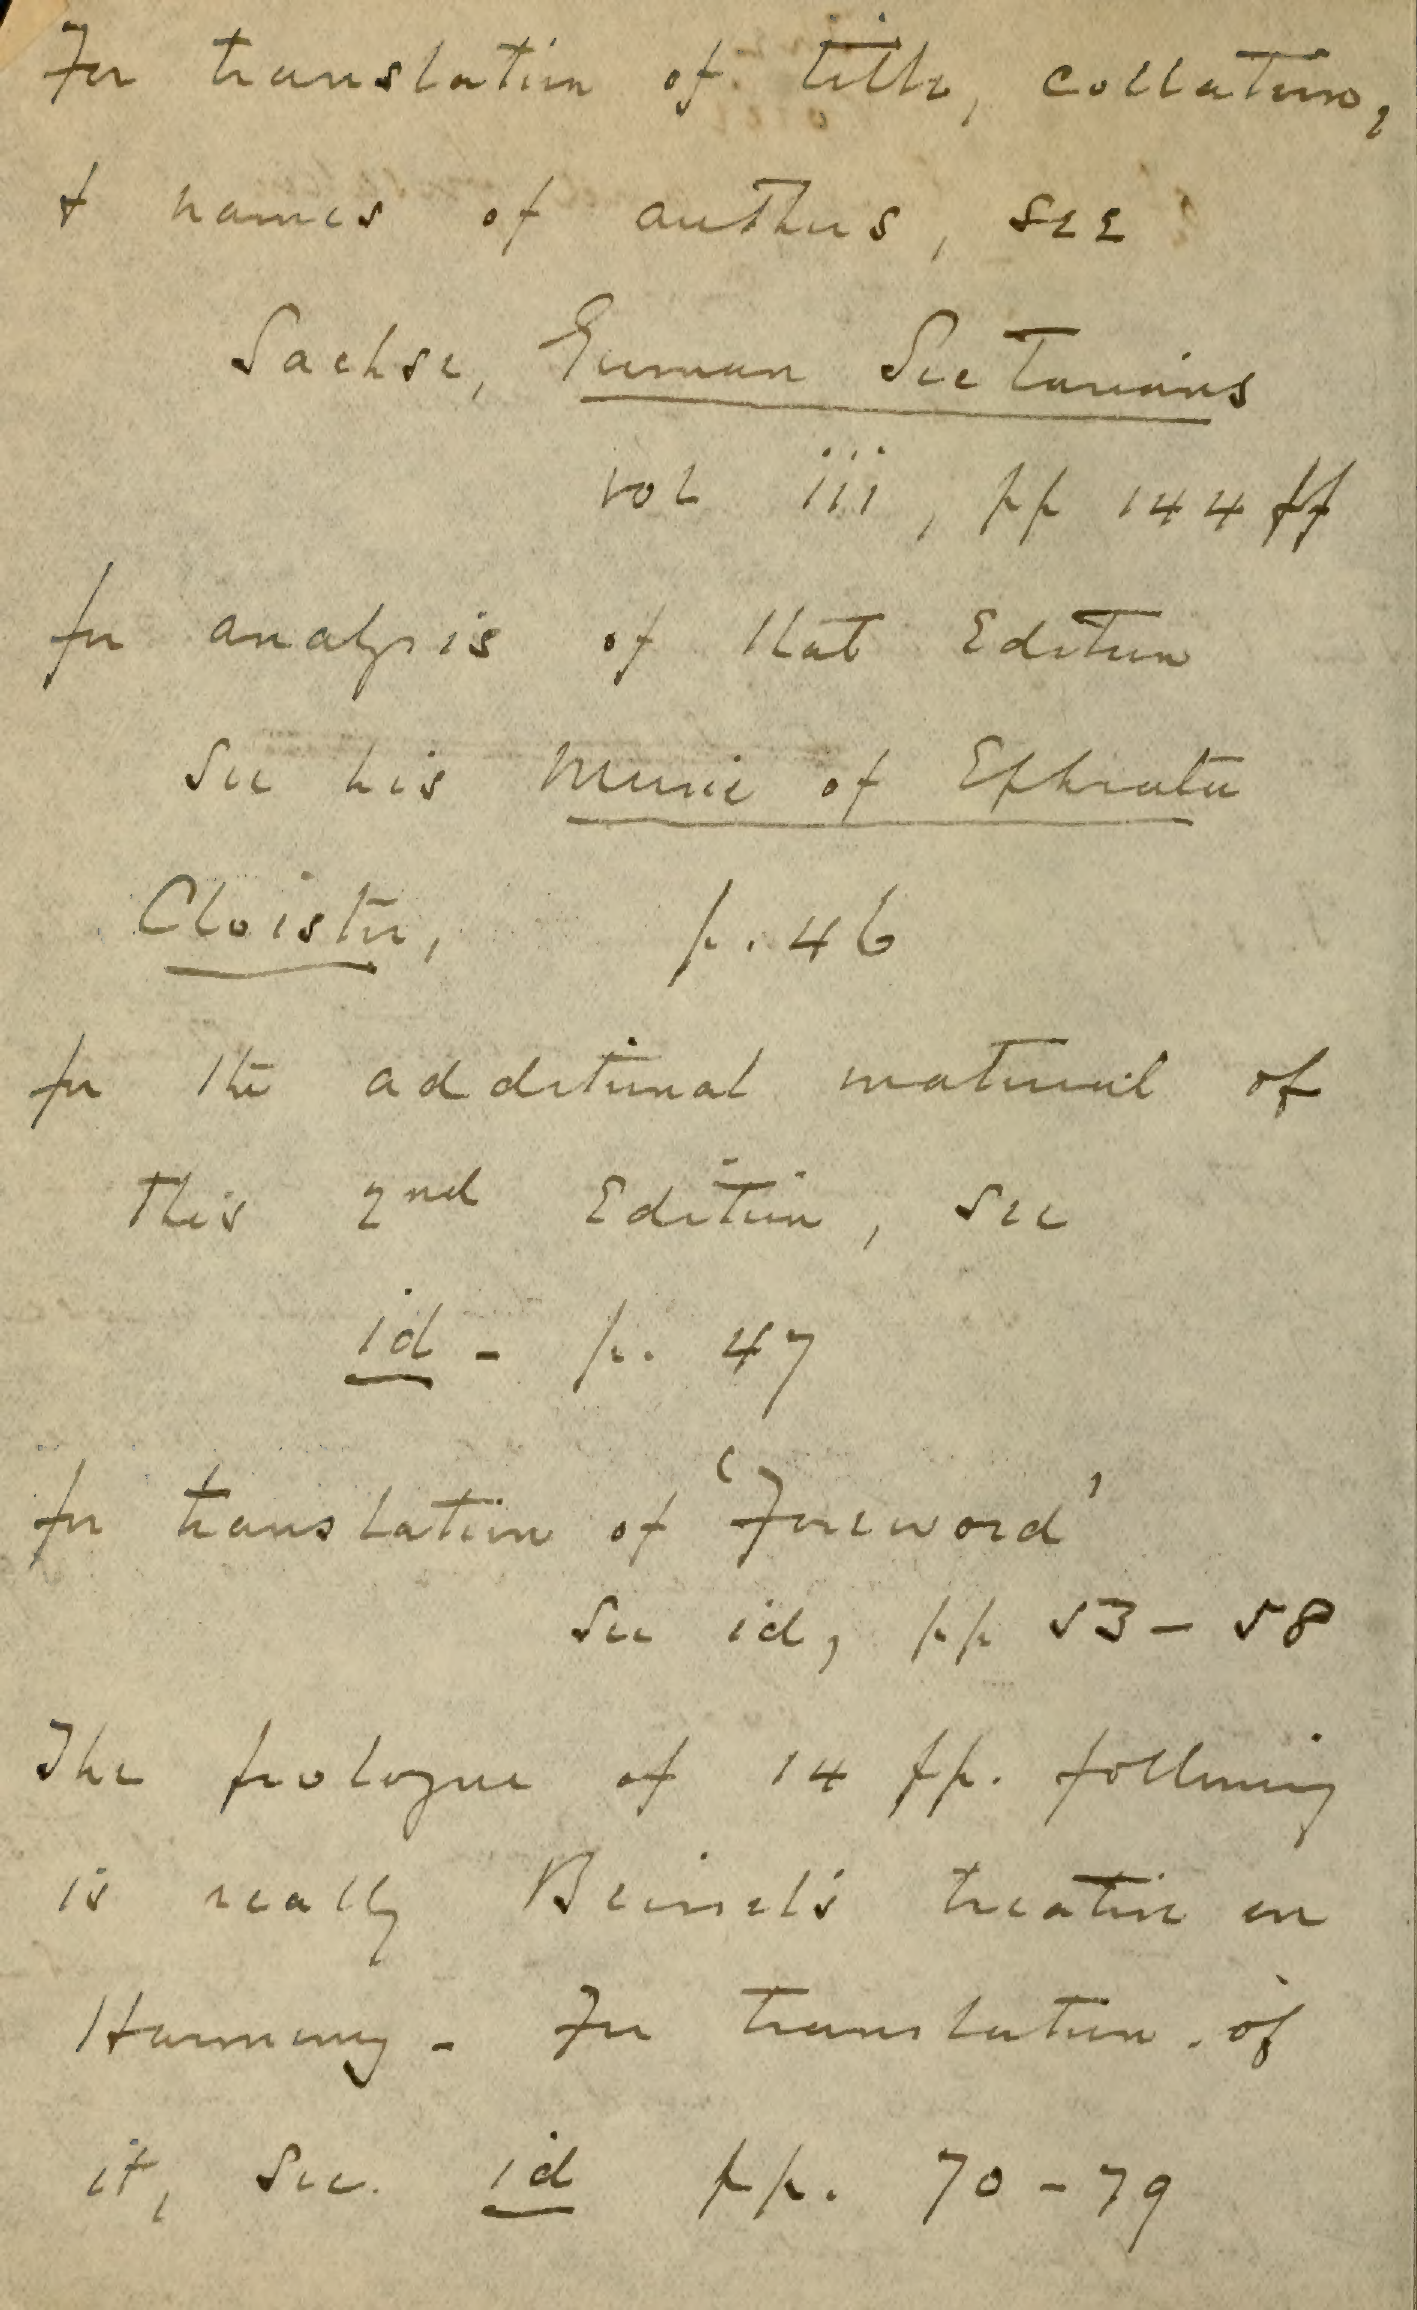 For translation of title, collation,
& names of authors, see
Sachse, German Sectarians
vol iii, pp 144 ff
for analysis of that Edition
See his Music of Ephrata
Cloister, p. 46
for the additional material of
this 2nd Edition, see
id - p. 47
for translation of 'Foreword'
See id, pp 53 - 58
The prologue of 14 pp. following
is really Beissel's treatise on
Harmony - For translation of
it, see id pp. 70 - 79